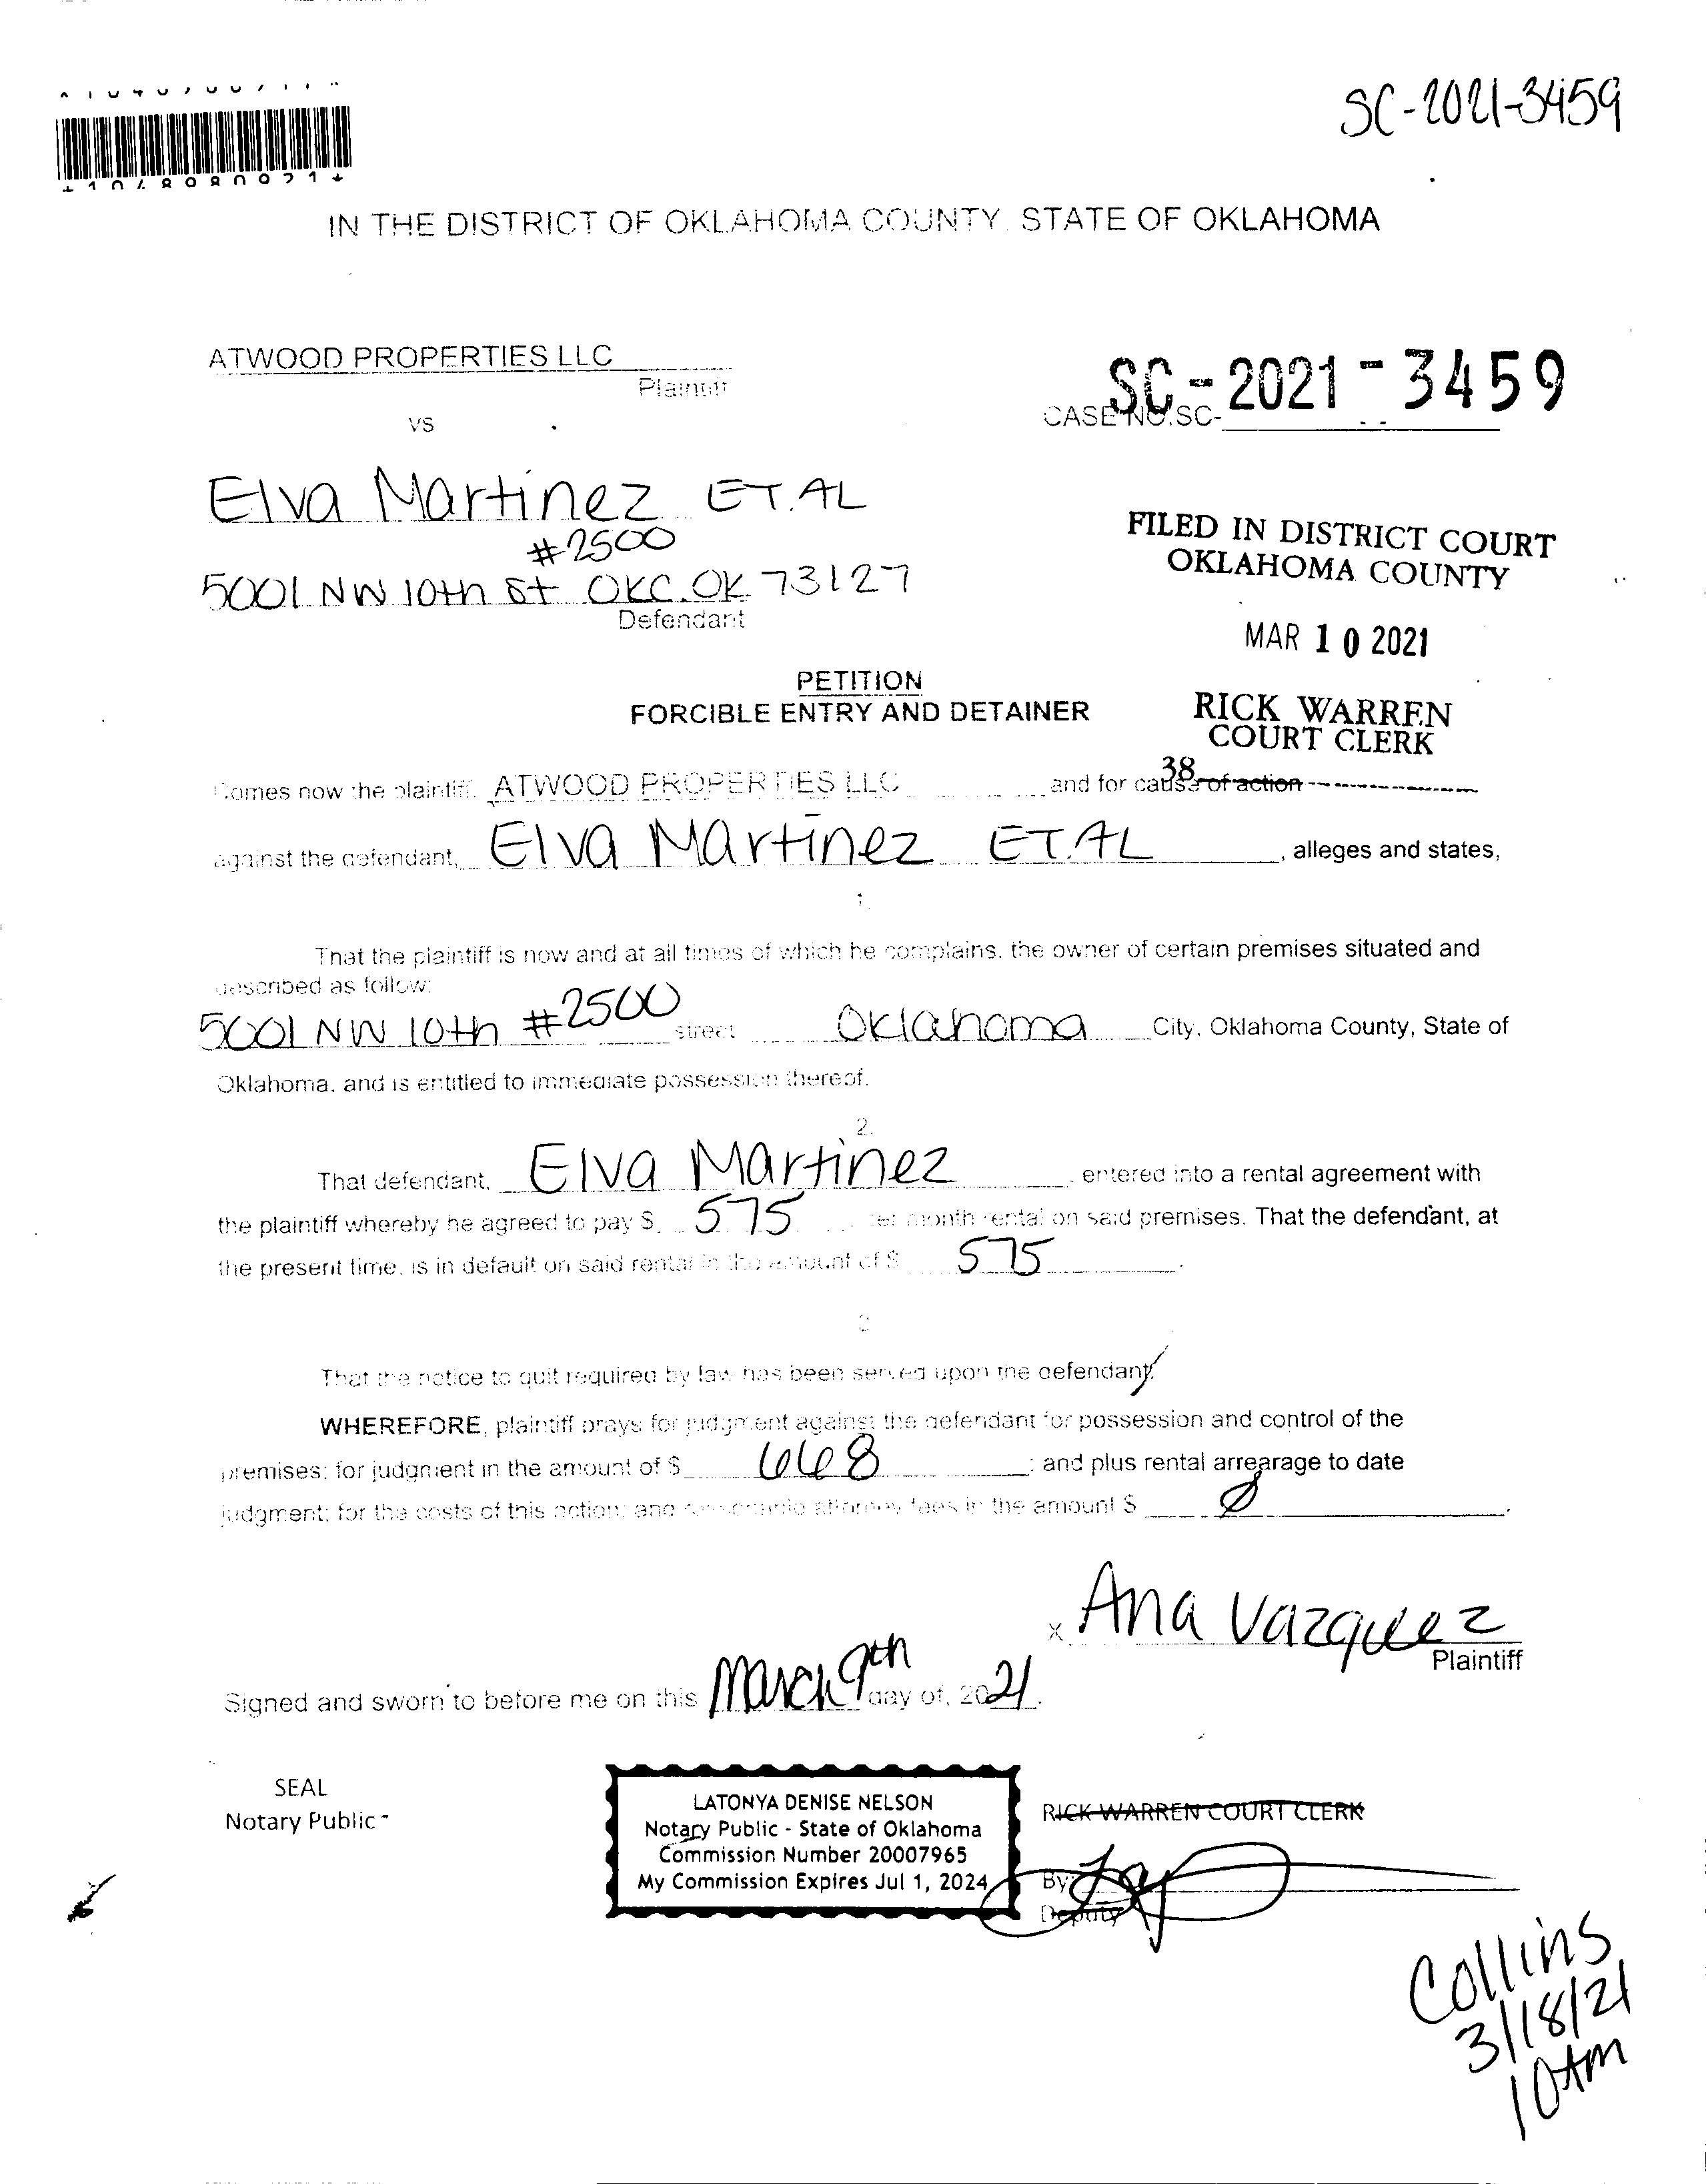 SC-2021-3459
IN THE DISTRICT OF OKLAHOMA COUNTY, STATE OF OKLAHOMA
ATWOOD PROPERTIES LLC
Plaintiff
VS
SC-2021-3459
CASE NO. SC-
Elva Martinez ET.AL
#2500
5001 NW 10th St OKC.OK 73127
Defendant
FILED IN DISTRICT COURT
OKLAHOMA COUNTY
MAR 10 2021
RICK WARREN
COURT CLERK
38
PETITION
FORCIBLE ENTRY AND DETAINER
Comes now the plaintiff, ATWOOD PROPERTIES LLC and for cause of action
against the defendant, Elva Martinez ET.AL, alleges and states,
1.
That the plaintiff is now and at all times of which he complains, the owner of certain premises situated and
described as follow:
5001 NW 10th #2500 street Oklahoma City, Oklahoma County, State of
Oklahoma, and is entitled to immediate possession thereof.
2.
That defendant, Elva Martinez entered into a rental agreement with
the plaintiff whereby he agreed to pay $ 575 per month rental on said premises. That the defendant, at
the present time, is in default on said rental in the amount of $ 575.
3
That the notice to quit required by law has been served upon the defendant.
WHEREFORE, plaintiff prays for judgment against the defendant for possession and control of the
premises: for judgment in the amount of $ 668 : and plus rental arrearage to date
judgment: for the costs of this action: and reasonable attorney fees in the amount $ Ø.
x Ana Vazquez
Plaintiff
Signed and sworn to before me on this March 9th day of, 2021.
SEAL
Notary Public -
LATONYA DENISE NELSON
Notary Public - State of Oklahoma
Commission Number 20007965
My Commission Expires Jul 1, 2024
RICK WARREN COURT CLERK
By:
Deputy
Collins
3/18/21
10AM